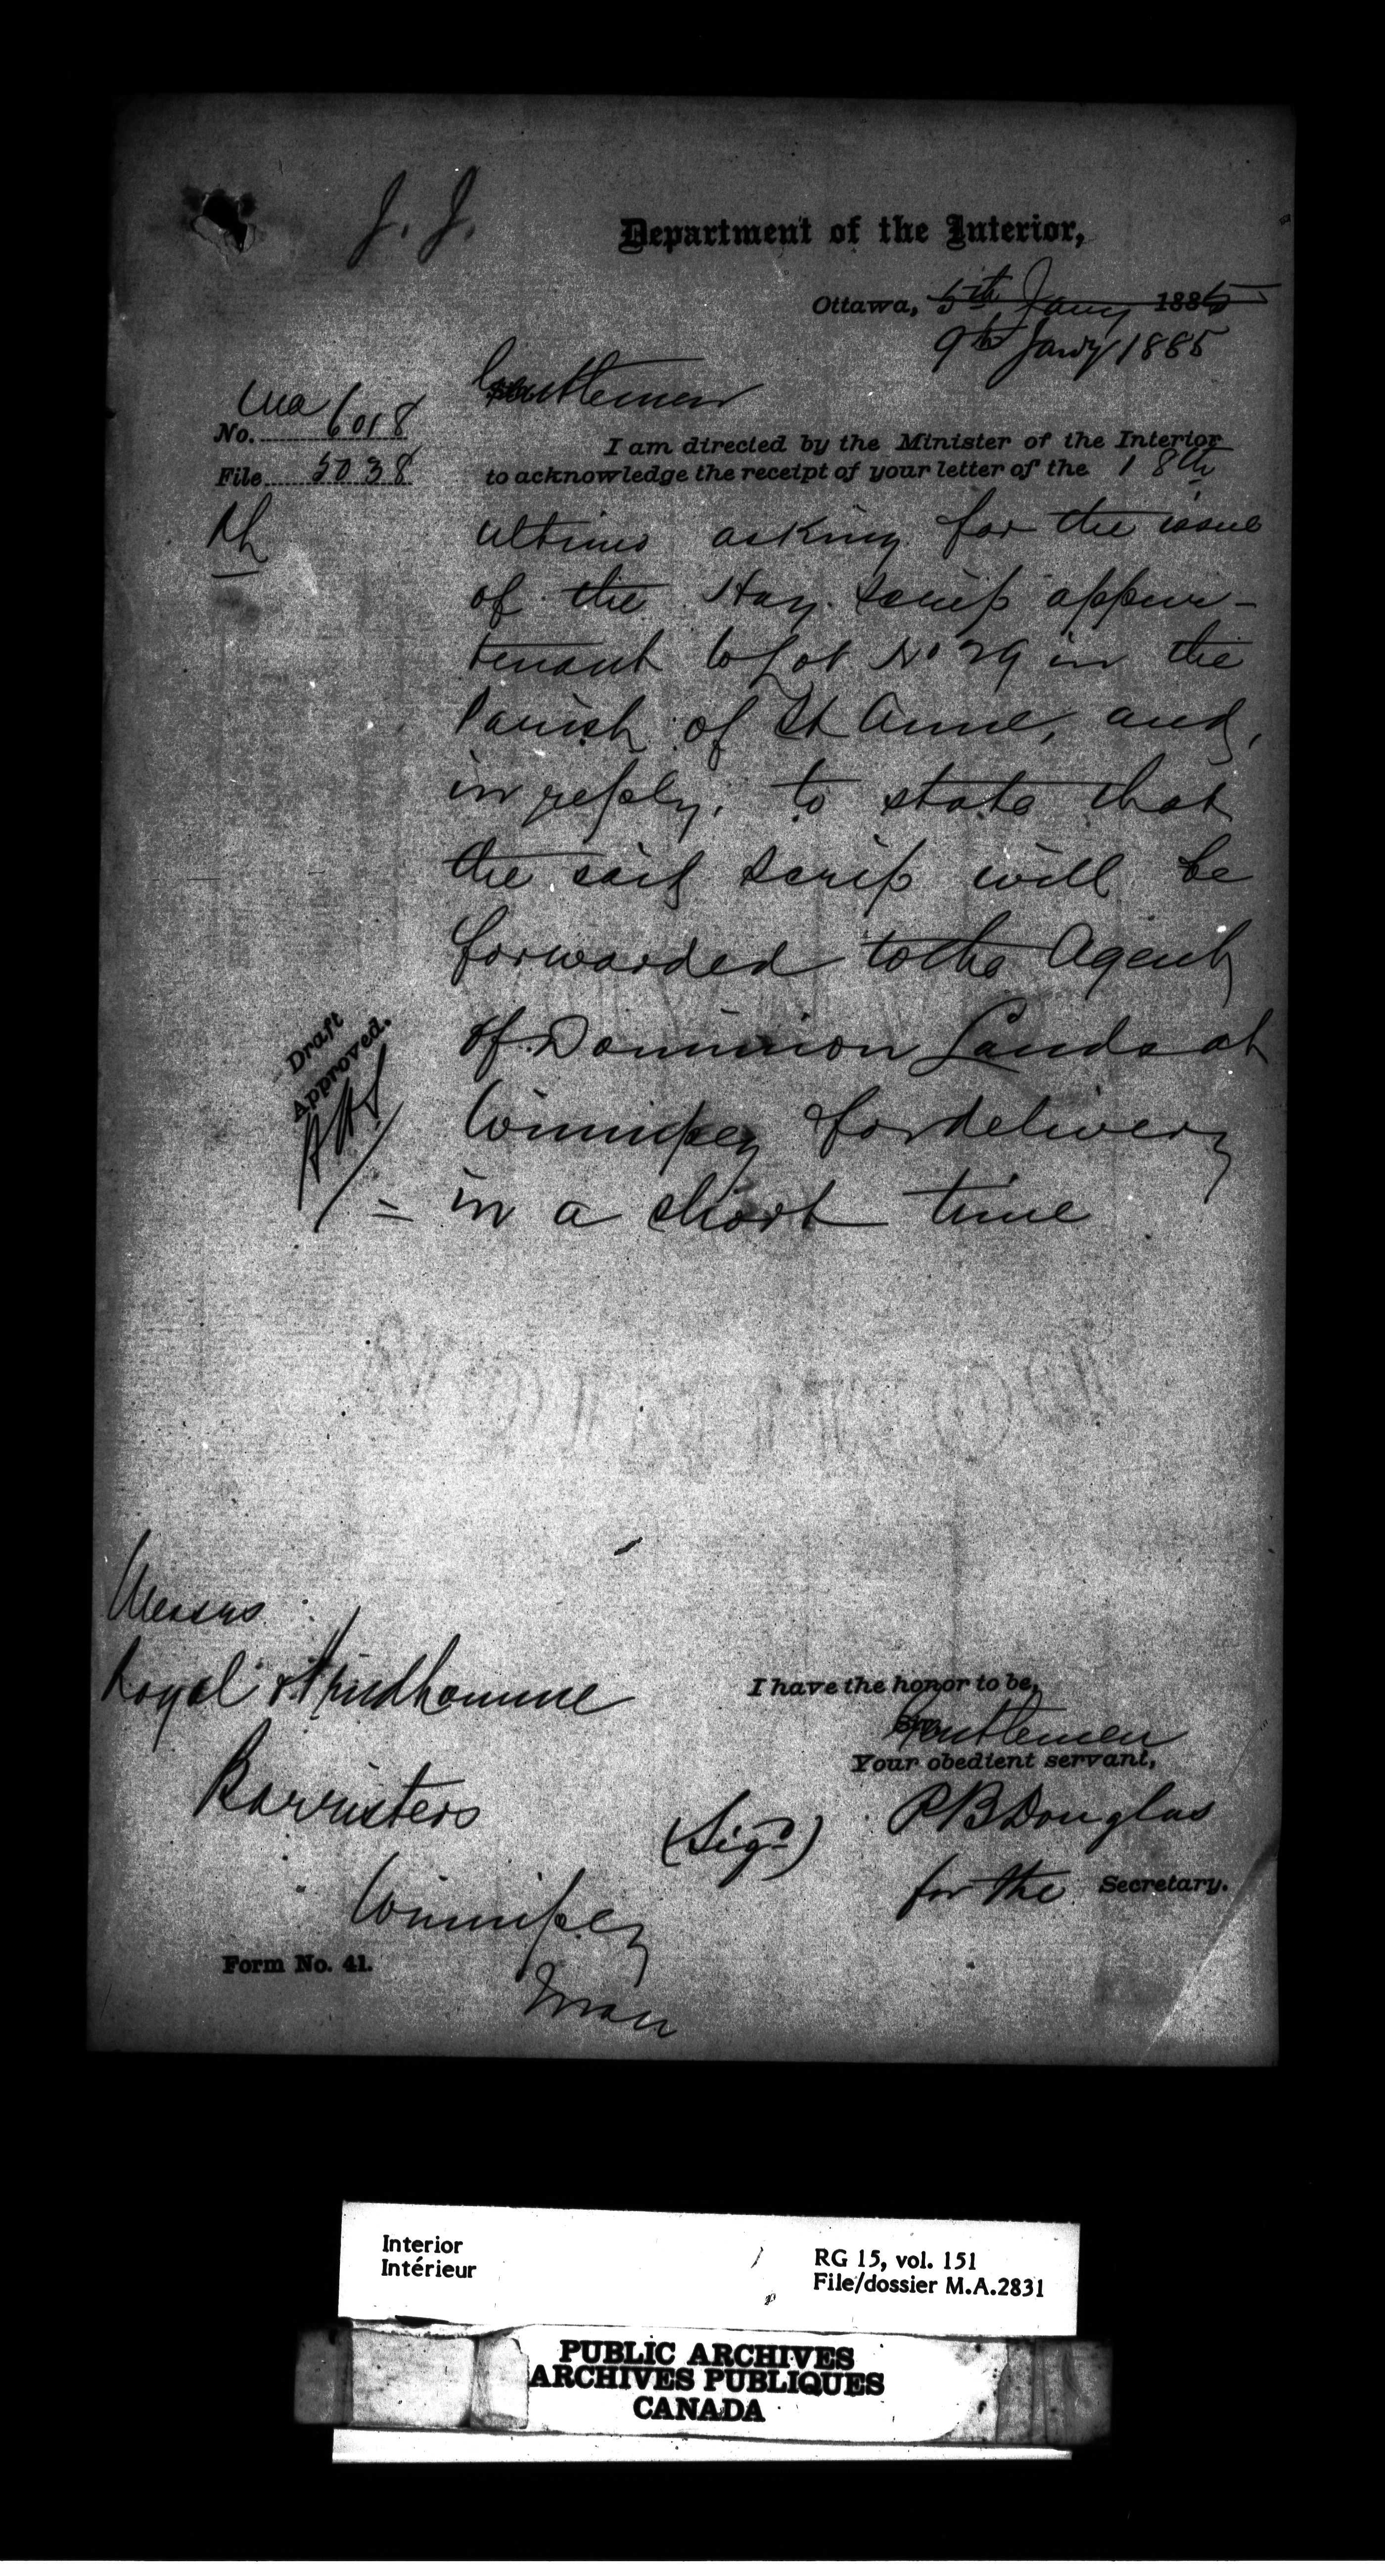 J. J.
Department of the Interior,
Ottawa, 5th Jany 1885
9th Jany 1885
Gentlemen
No. Ma 6018
File 5038
I am directed by the Minister of the Interior
to acknowledge the receipt of your letter of the 18th
ultimo asking for the issue
of the Hay Scrip appur-
tenant to Lot No 29 in the
Parish of St Anne, and,
in reply, to state that
the said scrip will be
forwarded to the Agent
of Dominion Lands at
Draft
Approved.
Winnipeg for delivery
in a short time
Messrs
Royal & Prudhomme
Barristers
Winnipeg
Man
I have the honor to be,
Gentlemen
Your obedient servant,
(Sigd) P B Douglas
for the Secretary.
Form No. 41.
Interior
Intérieur
RG 15, vol. 151
File/dossier M.A.2831
PUBLIC ARCHIVES
ARCHIVES PUBLIQUES
CANADA